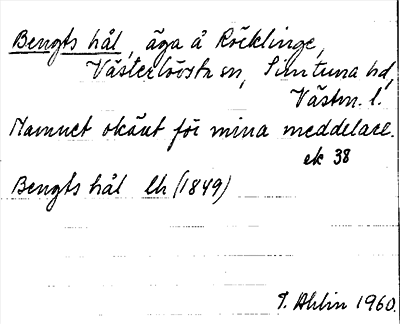 Bengts hål, äga å Röcklinge,
Västerlövsta sn, Simtuna hd,
Västm. l.
Namnet okänt för mina meddelare.
ek 38
Bengts hål Lh (1849)
T. Ahlin 1960.